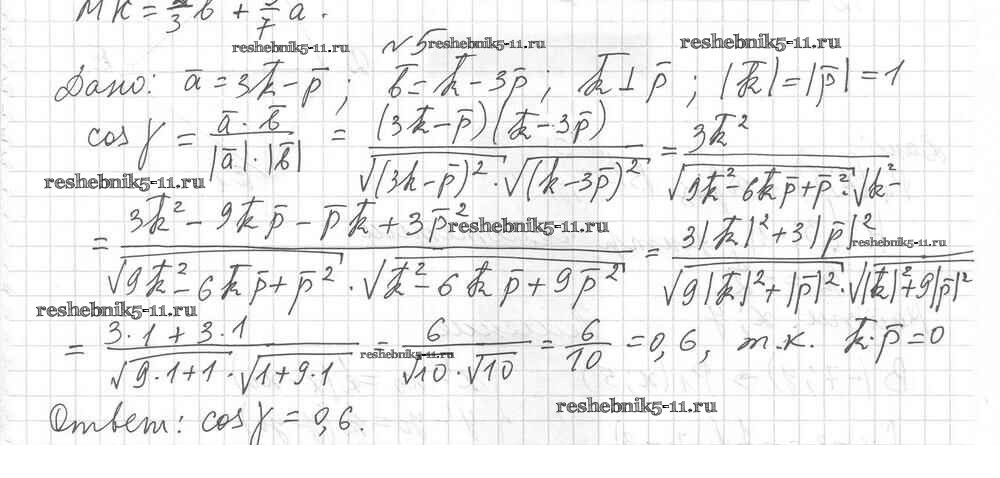 MK = /3 b̅ + /7 a̅.
reshebnik5-11.ru
№5 reshebnik5-11.ru reshebnik5-11.ru
Дано: a̅ = 3k̅ - p̅; b̅ = k̅ - 3p̅; k̅ ⊥ p̅; |k̅| = |p̅| = 1
cos γ = (a̅ · b̅)/(|a̅| · |b̅|) = ((3k̅ - p̅)(k̅ - 3p̅))/(√(3k - p̅)² · √(k - 3p̅)²) = 3k̅²/(√9k̅² - 6k̅p̅ + p̅² · √k² -
reshebnik5-11.ru
= (3k̅² - 9k̅p̅ - p̅k̅ + 3p̅²)/(√9k̅² - 6k̅p̅ + p̅² · √k̅² - 6k̅p̅ + 9p̅²) = (3|k̅|² + 3|p̅|²)/(√9|k̅|² + |p̅|² · √|k̅|² + 9|p̅|²)
reshebnik5-11.ru reshebnik5-11.ru
reshebnik5-11.ru
= (3·1 + 3·1)/(√9·1+1 · √1+9·1) = 6/(√10 · √10) = 6/10 = 0,6, т.к. k̅·p̅ = 0
reshebnik5-11.ru
reshebnik5-11.ru
Ответ: cos γ = 0,6.